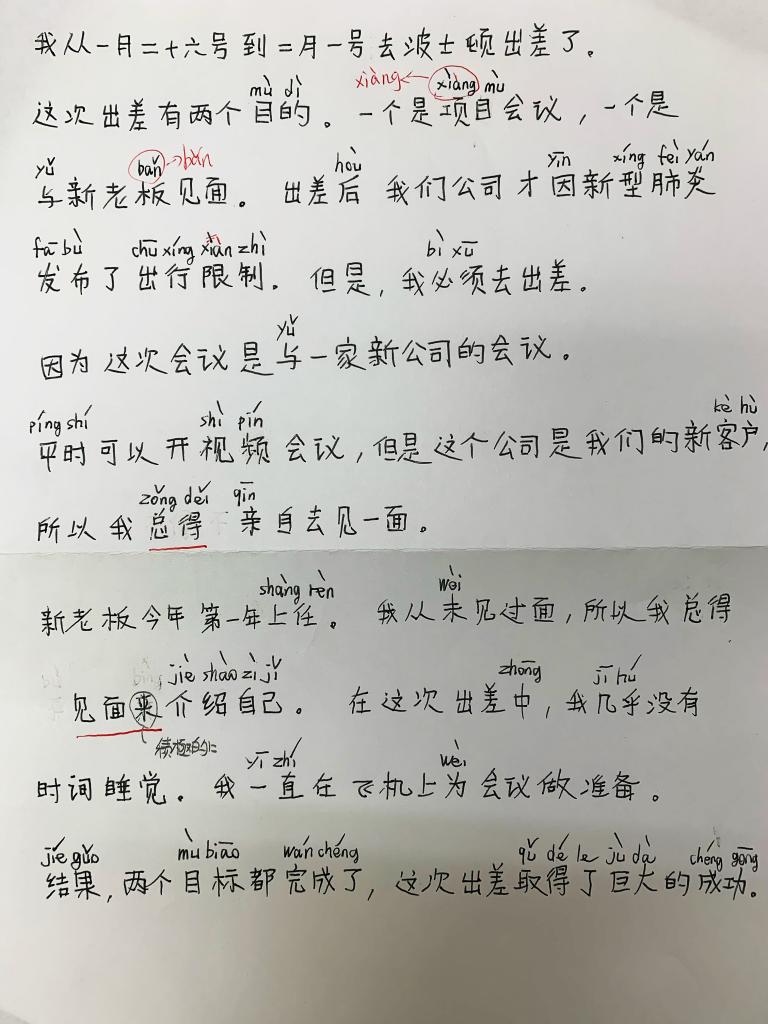 我从一月二十六号到二月一号去波士顿出差了。
mù dì xiàng xiàng mù
这次出差有两个目的。一个是项目会议，一个是
yǔ bǎn bǎn hòu yīn xíng fèi yán
与新老板见面。出差后我们公司才因新型肺炎
fā bù chū xíng xiàn zhì bì xū
发布了出行限制。但是，我必须去出差。
yǔ
因为这次会议是与一家新公司的会议。
píng shí shì pín kè hù
平时可以开视频会议，但是这个公司是我们的新客户，
zǒng děi qīn
所以我总得亲自去见一面。
shàng rèn wèi
新老板今年第一年上任。我从未见过面，所以我总得
jiè shào zì jǐ zhōng jī hū
见面来介绍自己。在这次出差中，我几乎没有
yī zhí wèi
时间睡觉。我一直在飞机上为会议做准备。
jié guǒ mù biāo wán chéng qǔ dé le jù dà chéng gōng
结果，两个目标都完成了，这次出差取得了巨大的成功。